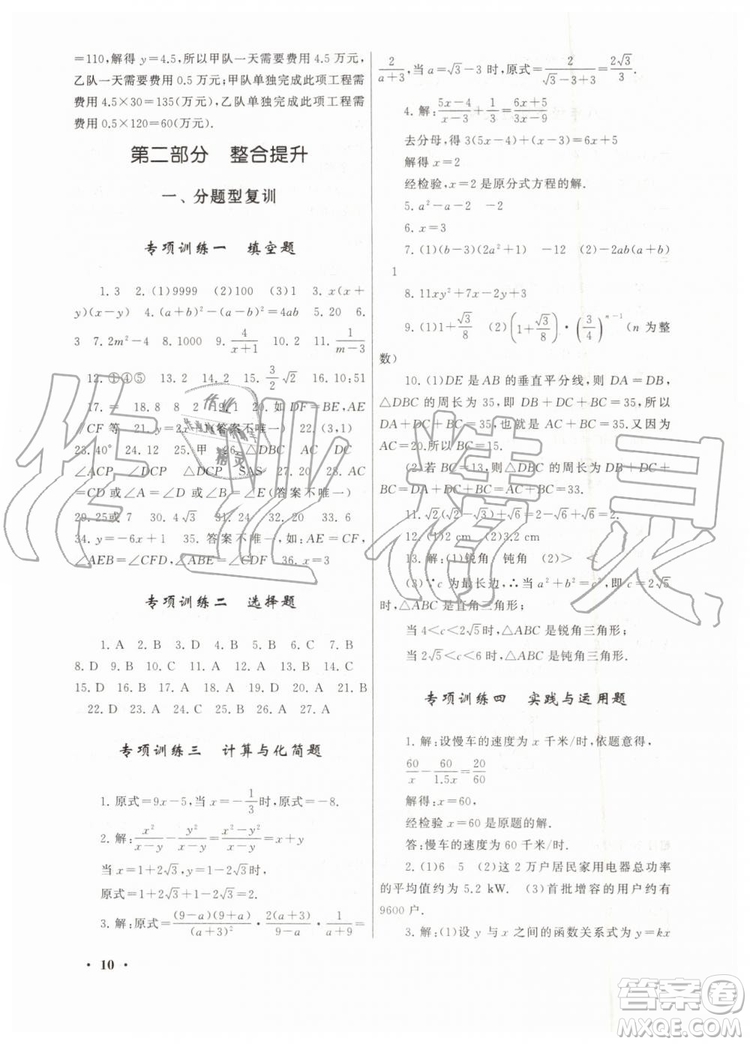 =110,解得 y=4.5,所以甲队一天需要费用 4.5 万元,
乙队一天需要费用 0.5 万元;甲队单独完成此项工程需
费用 4.5×30=135(万元),乙队单独完成此项工程需费用
0.5×120=60(万元).
第二部分 整合提升
一、分题型复训
专项训练一 填空题
1.3 2.(1)9999 (2)100 (3)1 3.x(x+
y)(x-y) 4.(a+b)²-(a-b)²=4ab 5.20 6.
3 7.2m²-4 8.1000 9.4/(x+1) 10.1 11.1/(m-3)
12.①④⑤ 13.4 14.2 15.(3/2)√2 16.10:51
17.= 18.8 8 2 19.2 20.如 DF=BE,AE
=CF等 21.y=x+2(答案不唯一) 22.(3,1)
23.40° 24.12 25.甲 26.AC DC
∠ACP=∠DCP SAS 27.如:AC=
CD或∠B=∠E(答案不唯一)
29.25或7 30.4√3 33.6
34.y=-6x+1 35.答案不唯一,如:AE=CF,
∠AEB=∠CFD, 36.>
专项训练二 选择题
1.A 2.B 3.D 4.B 5.B 6.D 7.D
8.D 9.B 10.D 11.A 12.D 13.D 14.D
15.C 16.C 17.D 18.B 19.A 20.D 21.A
22.D 23.D 24.D 25.D 26.D 27.A
专项训练三 计算与化简题
1.原式=9x-5,当 x=-1/3时,原式=-8.
2.解:x²/(x-y)-y²/(x-y)=(x²-y²)/(x-y)=x+y
当 x=1+2√3,y=1-2√3时,
原式=1+2√3+1-2√3=2.
3.解:原式=(9-a)(9+a)/(a+3)²·2(a+3)/(9-a)·1/(a+9)=
· 10 ·
2/(a+3),当 a=√3-3时,原式=2/(√3-3+3)=2/√3=2√3/3.
4.解:(5x-4)/(x-3)+1/3=(6x+5)/(3x-9)
去分母,得 3(5x-4)+(x-3)=6x+5
解得 x=2
经检验,x=2 是原分式方程的解.
5.a²-a-2 -2
6.x=3
7.(1)(b-3)(2b+1) -12 (2)-2ab(a+b)
1
8.11xy²+y³-2x²y
9.(1)1+√3/8 (2)(1+√3/8)·(3/4)ⁿ⁻¹(n 为整
数)
10.(1)DE 是 AB 的垂直平分线,所以 DA=DB,
△DBC 的周长为35,即 DB+DC+BC=35,所以
DA+DC+BC=35,也就是 AC+BC=35,又因为
AC=20.所以 BC=15.
(2)若 BC=13,根据前面,△DBC的周长=AC+
BC=20+13=33.
11.√2(√2-√3)+√6=2-√6+√6=2
12.(1)2 cm (2)3.2 cm
13.解:(1)锐角 钝角 (2)> <
(3)∵c 为最长边,∴当 a²+b²=c²,即 c=2√5
时,△ABC 是直角三角形;
当 4<c<2√5时,△ABC 是锐角三角形;
当 2√5<c<6 时,△ABC 是钝角三角形.
专项训练四 实践与运用题
1.解:设慢车的速度为 x 千米/时,依题意得,
60/x-60/1.5x=20/60
解得:x=60,
经检验 x=60 是原题的解.
答:慢车的速度为 60 千米/时.
2.(1)6 5 (2)这 2 万户居民家用电器总功率
的平均值约为 5.2 kW. (3)首批增容的用户约有
9600 户.
3.解:(1)设 y 与 x 之间的函数关系式为 y=kx
作业精灵
作业精灵
答案圈
MXQE.COM